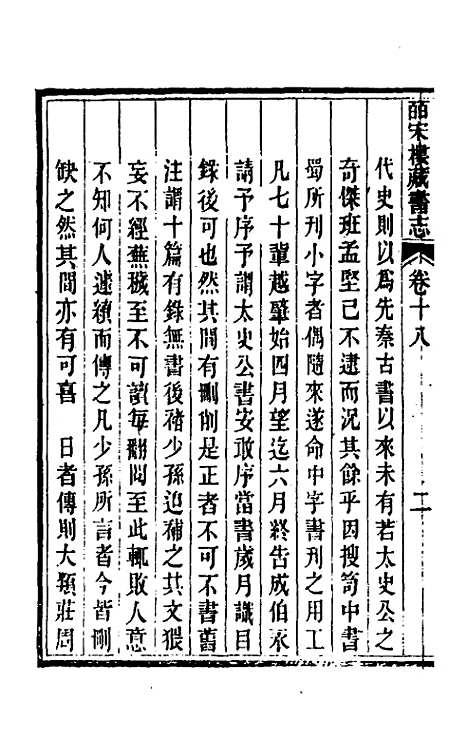 皕宋樓藏書志 卷十八 二
代史則以爲先秦古書以來未有若太史公之
奇傑班孟堅已不逮而況其餘乎因搜笥中書
蜀所刊小字者偶隨來遂命中字書刊之用工
凡七十輩越肇始四月望迄六月終告成伯永
請予序予謂太史公書安敢序當書歲月識目
錄後可也然其間有刪削是正者不可不書舊
注謂十篇有錄無書後禇少孫追補之其文猥
妄不經蕪穢至不可讀每翻閱至此輒敗人意
不知何人遽續而傳之凡少孫所言者今皆刪
缺之然其間亦有可喜 日者傳則大類莊周